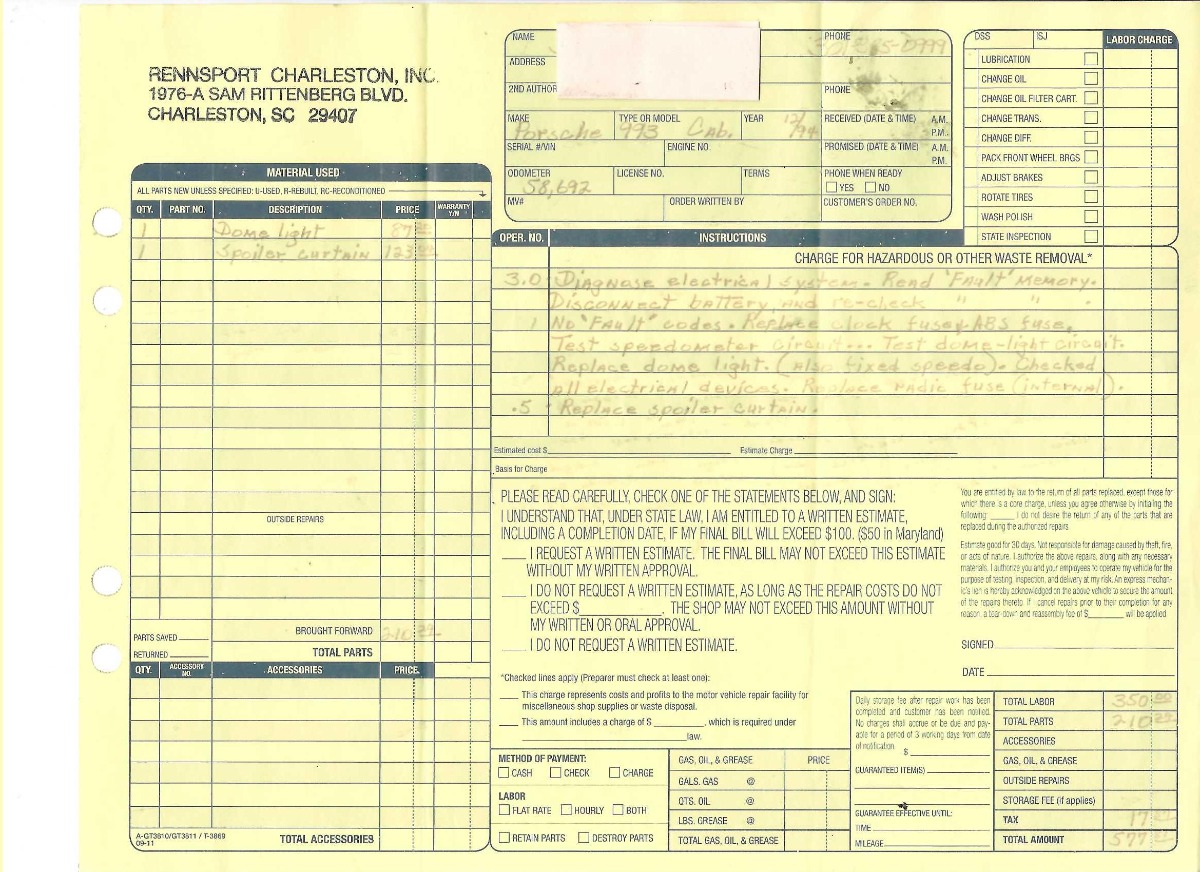 RENNSPORT CHARLESTON, INC.
1976-A SAM RITTENBERG BLVD.
CHARLESTON, SC 29407
NAME
PHONE
ADDRESS
2ND AUTHOR
PHONE
MAKE Porsche
TYPE OR MODEL 993 Cab.
YEAR 12/94
RECEIVED (DATE & TIME) A.M. P.M.
SERIAL #/VIN
ENGINE NO.
PROMISED (DATE & TIME) A.M. P.M.
ODOMETER 58,692
LICENSE NO.
TERMS
PHONE WHEN READY
YES NO
MV#
ORDER WRITTEN BY
CUSTOMER'S ORDER NO.
DSS ISJ LABOR CHARGE
LUBRICATION
CHANGE OIL
CHANGE OIL FILTER CART.
CHANGE TRANS.
CHANGE DIFF.
PACK FRONT WHEEL BRGS
ADJUST BRAKES
ROTATE TIRES
WASH POLISH
STATE INSPECTION
MATERIAL USED
ALL PARTS NEW UNLESS SPECIFIED: U-USED, R-REBUILT, RC-RECONDITIONED
QTY. PART NO. DESCRIPTION PRICE WARRANTY Y/N
1 Dome light 87
1 Spoiler curtain 123
OUTSIDE REPAIRS
PARTS SAVED
BROUGHT FORWARD 210
RETURNED
TOTAL PARTS
QTY. ACCESSORY NO. ACCESSORIES PRICE
A-GT3810/GT3811 / T-3869
09-11
TOTAL ACCESSORIES
OPER. NO. INSTRUCTIONS
CHARGE FOR HAZARDOUS OR OTHER WASTE REMOVAL*
3.0 Diagnose electrical system. Read "Fault" memory.
Disconnect battery and re-check " " .
1 No "Fault" codes. Replace clock fuse & ABS fuse.
Test speedometer circuit... Test dome-light circuit.
Replace dome light. (also fixed speedo). Checked
all electrical devices. Replace radio fuse (internal).
.5 Replace spoiler curtain.
Estimated cost $
Estimate Charge
Basis for Charge
PLEASE READ CAREFULLY, CHECK ONE OF THE STATEMENTS BELOW, AND SIGN:
I UNDERSTAND THAT, UNDER STATE LAW, I AM ENTITLED TO A WRITTEN ESTIMATE,
INCLUDING A COMPLETION DATE, IF MY FINAL BILL WILL EXCEED $100. ($50 in Maryland)
I REQUEST A WRITTEN ESTIMATE. THE FINAL BILL MAY NOT EXCEED THIS ESTIMATE
WITHOUT MY WRITTEN APPROVAL.
I DO NOT REQUEST A WRITTEN ESTIMATE, AS LONG AS THE REPAIR COSTS DO NOT
EXCEED $ . THE SHOP MAY NOT EXCEED THIS AMOUNT WITHOUT
MY WRITTEN OR ORAL APPROVAL.
I DO NOT REQUEST A WRITTEN ESTIMATE.
*Checked lines apply (Preparer must check at least one):
This charge represents costs and profits to the motor vehicle repair facility for
miscellaneous shop supplies or waste disposal.
This amount includes a charge of $ , which is required under
law.
You are entitled by law to the return of all parts replaced, except those for
which there is a core charge, unless you agree otherwise by initialing the
following: I do not desire the return of any of the parts that are
replaced during the authorized repairs
Estimate good for 30 days. Not responsible for damage caused by theft, fire,
or acts of nature. I authorize the above repairs, along with any necessary
materials. I authorize you and your employees to operate my vehicle for the
purpose of testing, inspection, and delivery at my risk. An express mechan-
ic's lien is hereby acknowledged on the above vehicle to secure the amount
of the repairs thereto. If I cancel repairs prior to their completion for any
reason, a tear down and reassembly fee of $ will be applied.
SIGNED
DATE
METHOD OF PAYMENT:
CASH CHECK CHARGE
LABOR
FLAT RATE HOURLY BOTH
RETAIN PARTS DESTROY PARTS
GAS, OIL, & GREASE PRICE
GALS. GAS @
QTS. OIL @
LBS. GREASE @
TOTAL GAS, OIL, & GREASE
Daily storage fee after repair work has been
completed and customer has been notified.
No charges shall accrue or be due and pay-
able for a period of 3 working days from date
of notification. $
GUARANTEED ITEM(S)
GUARANTEE EFFECTIVE UNTIL:
TIME
MILEAGE
TOTAL LABOR 350 00
TOTAL PARTS 210
ACCESSORIES
GAS, OIL, & GREASE
OUTSIDE REPAIRS
STORAGE FEE (if applies)
TAX 17
TOTAL AMOUNT 577